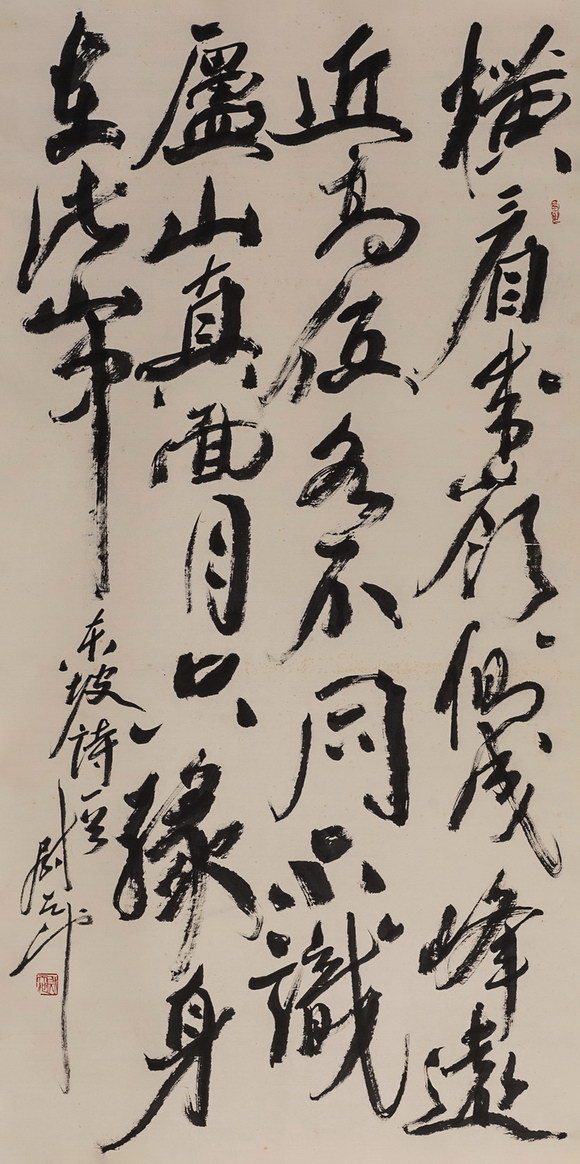 橫看成嶺側成峰遠
近高低各不同不識
廬山真面目只緣身
在此山中
东坡詩一首
尉天池